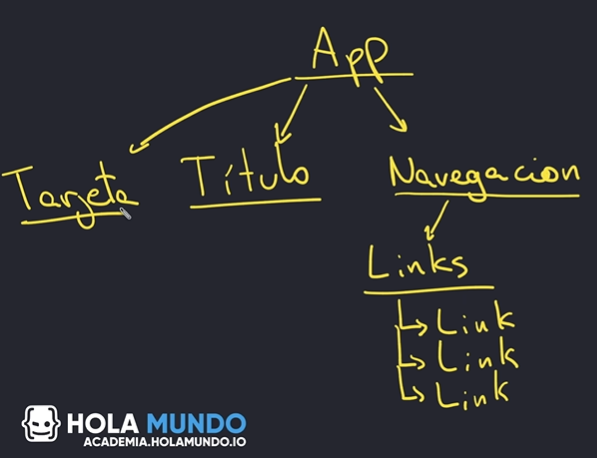 App
Tarjeta Título Navegacion
Links
Link
Link
Link
HOLA MUNDO
ACADEMIA.HOLAMUNDO.IO